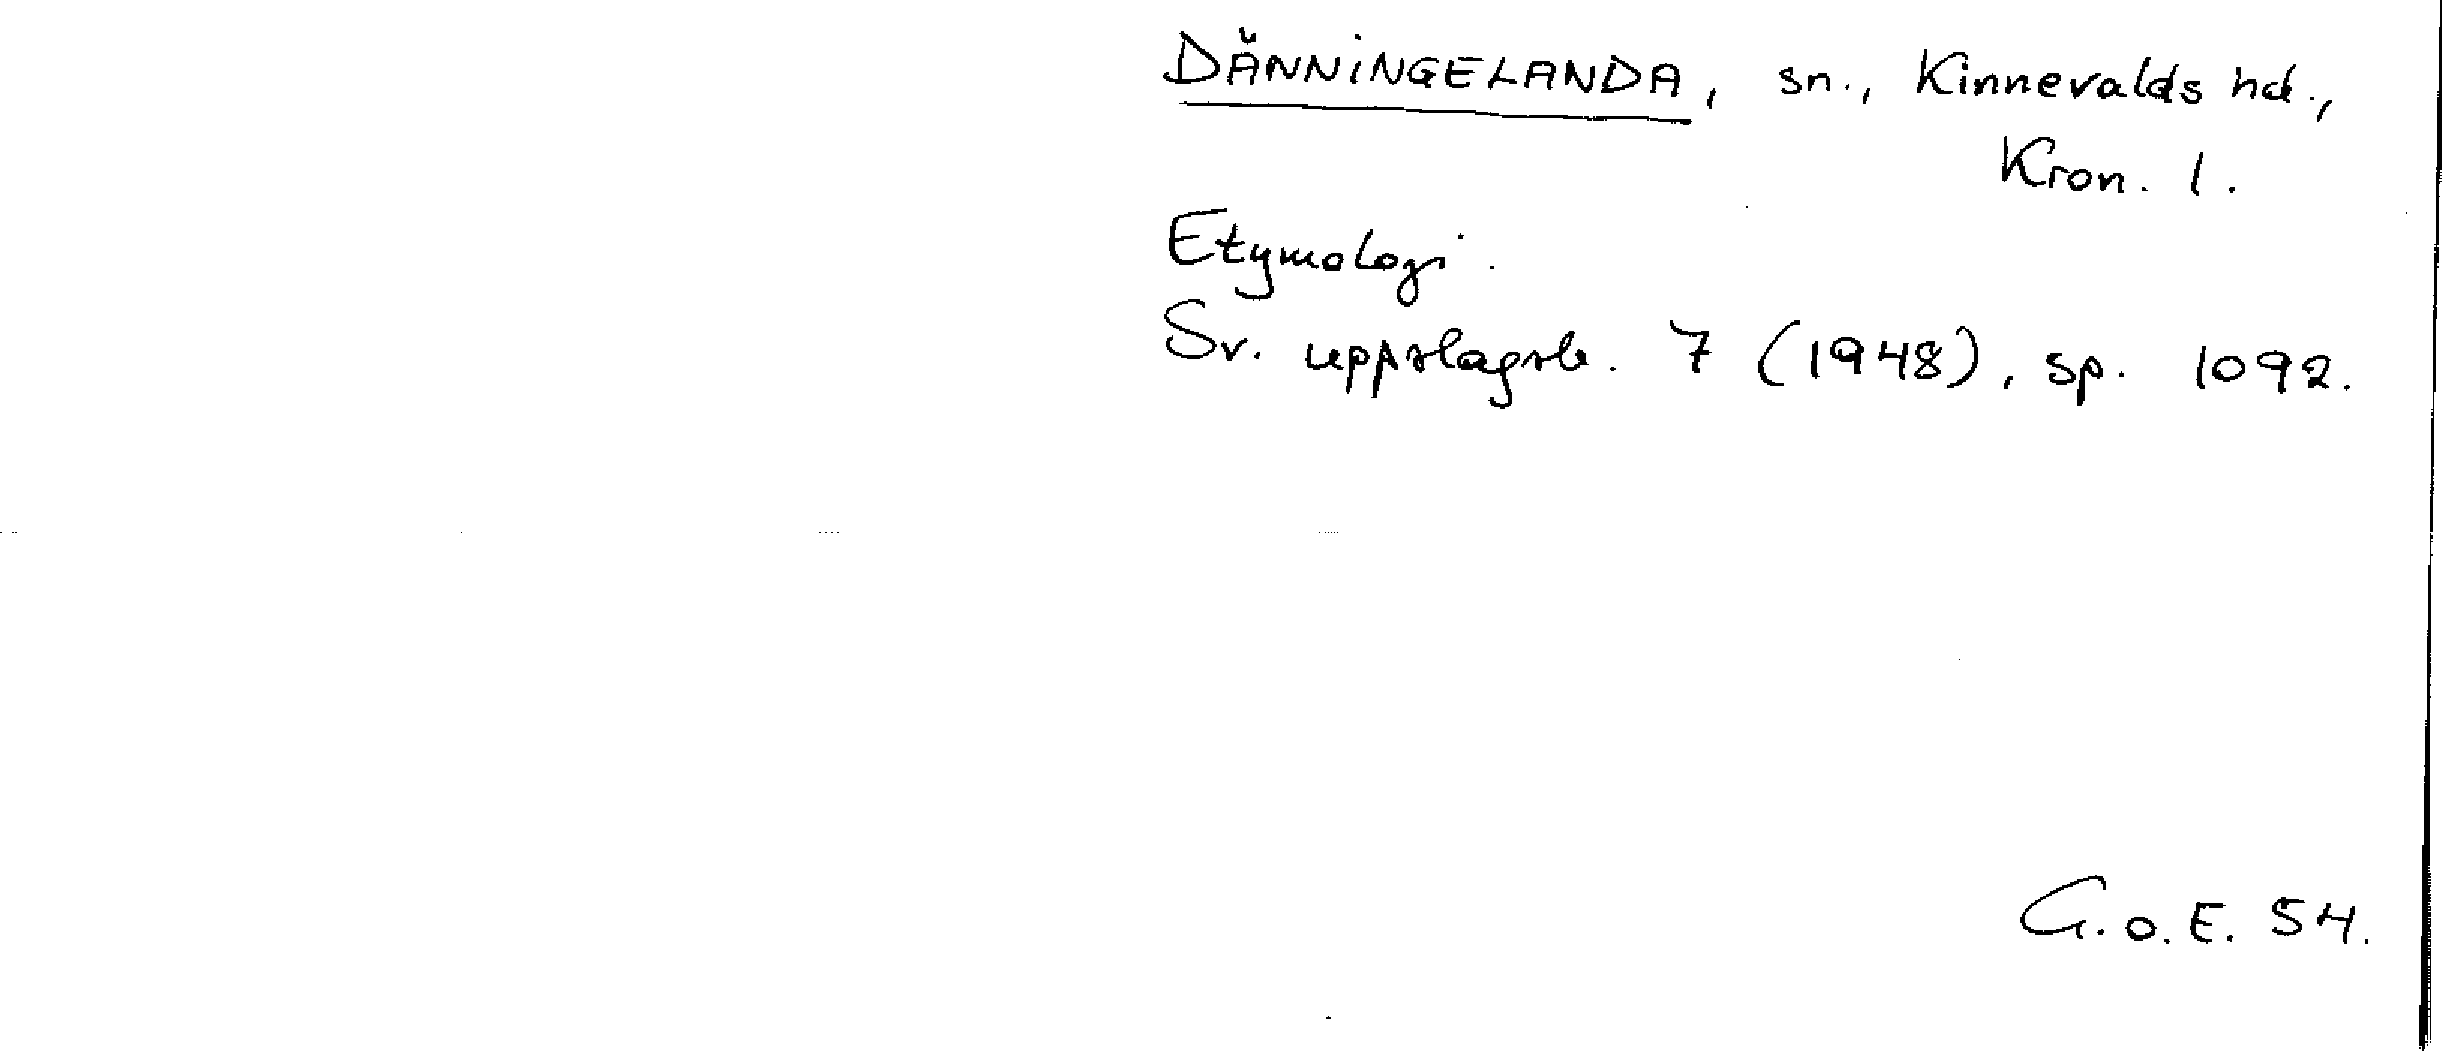 DÄNNINGELANDA, sn., Kinnevalds hd.,
Kron. l.
Etymologi.
Sv. uppslagsb. 7 (1948), sp. 1092.
G.o.E. 54.